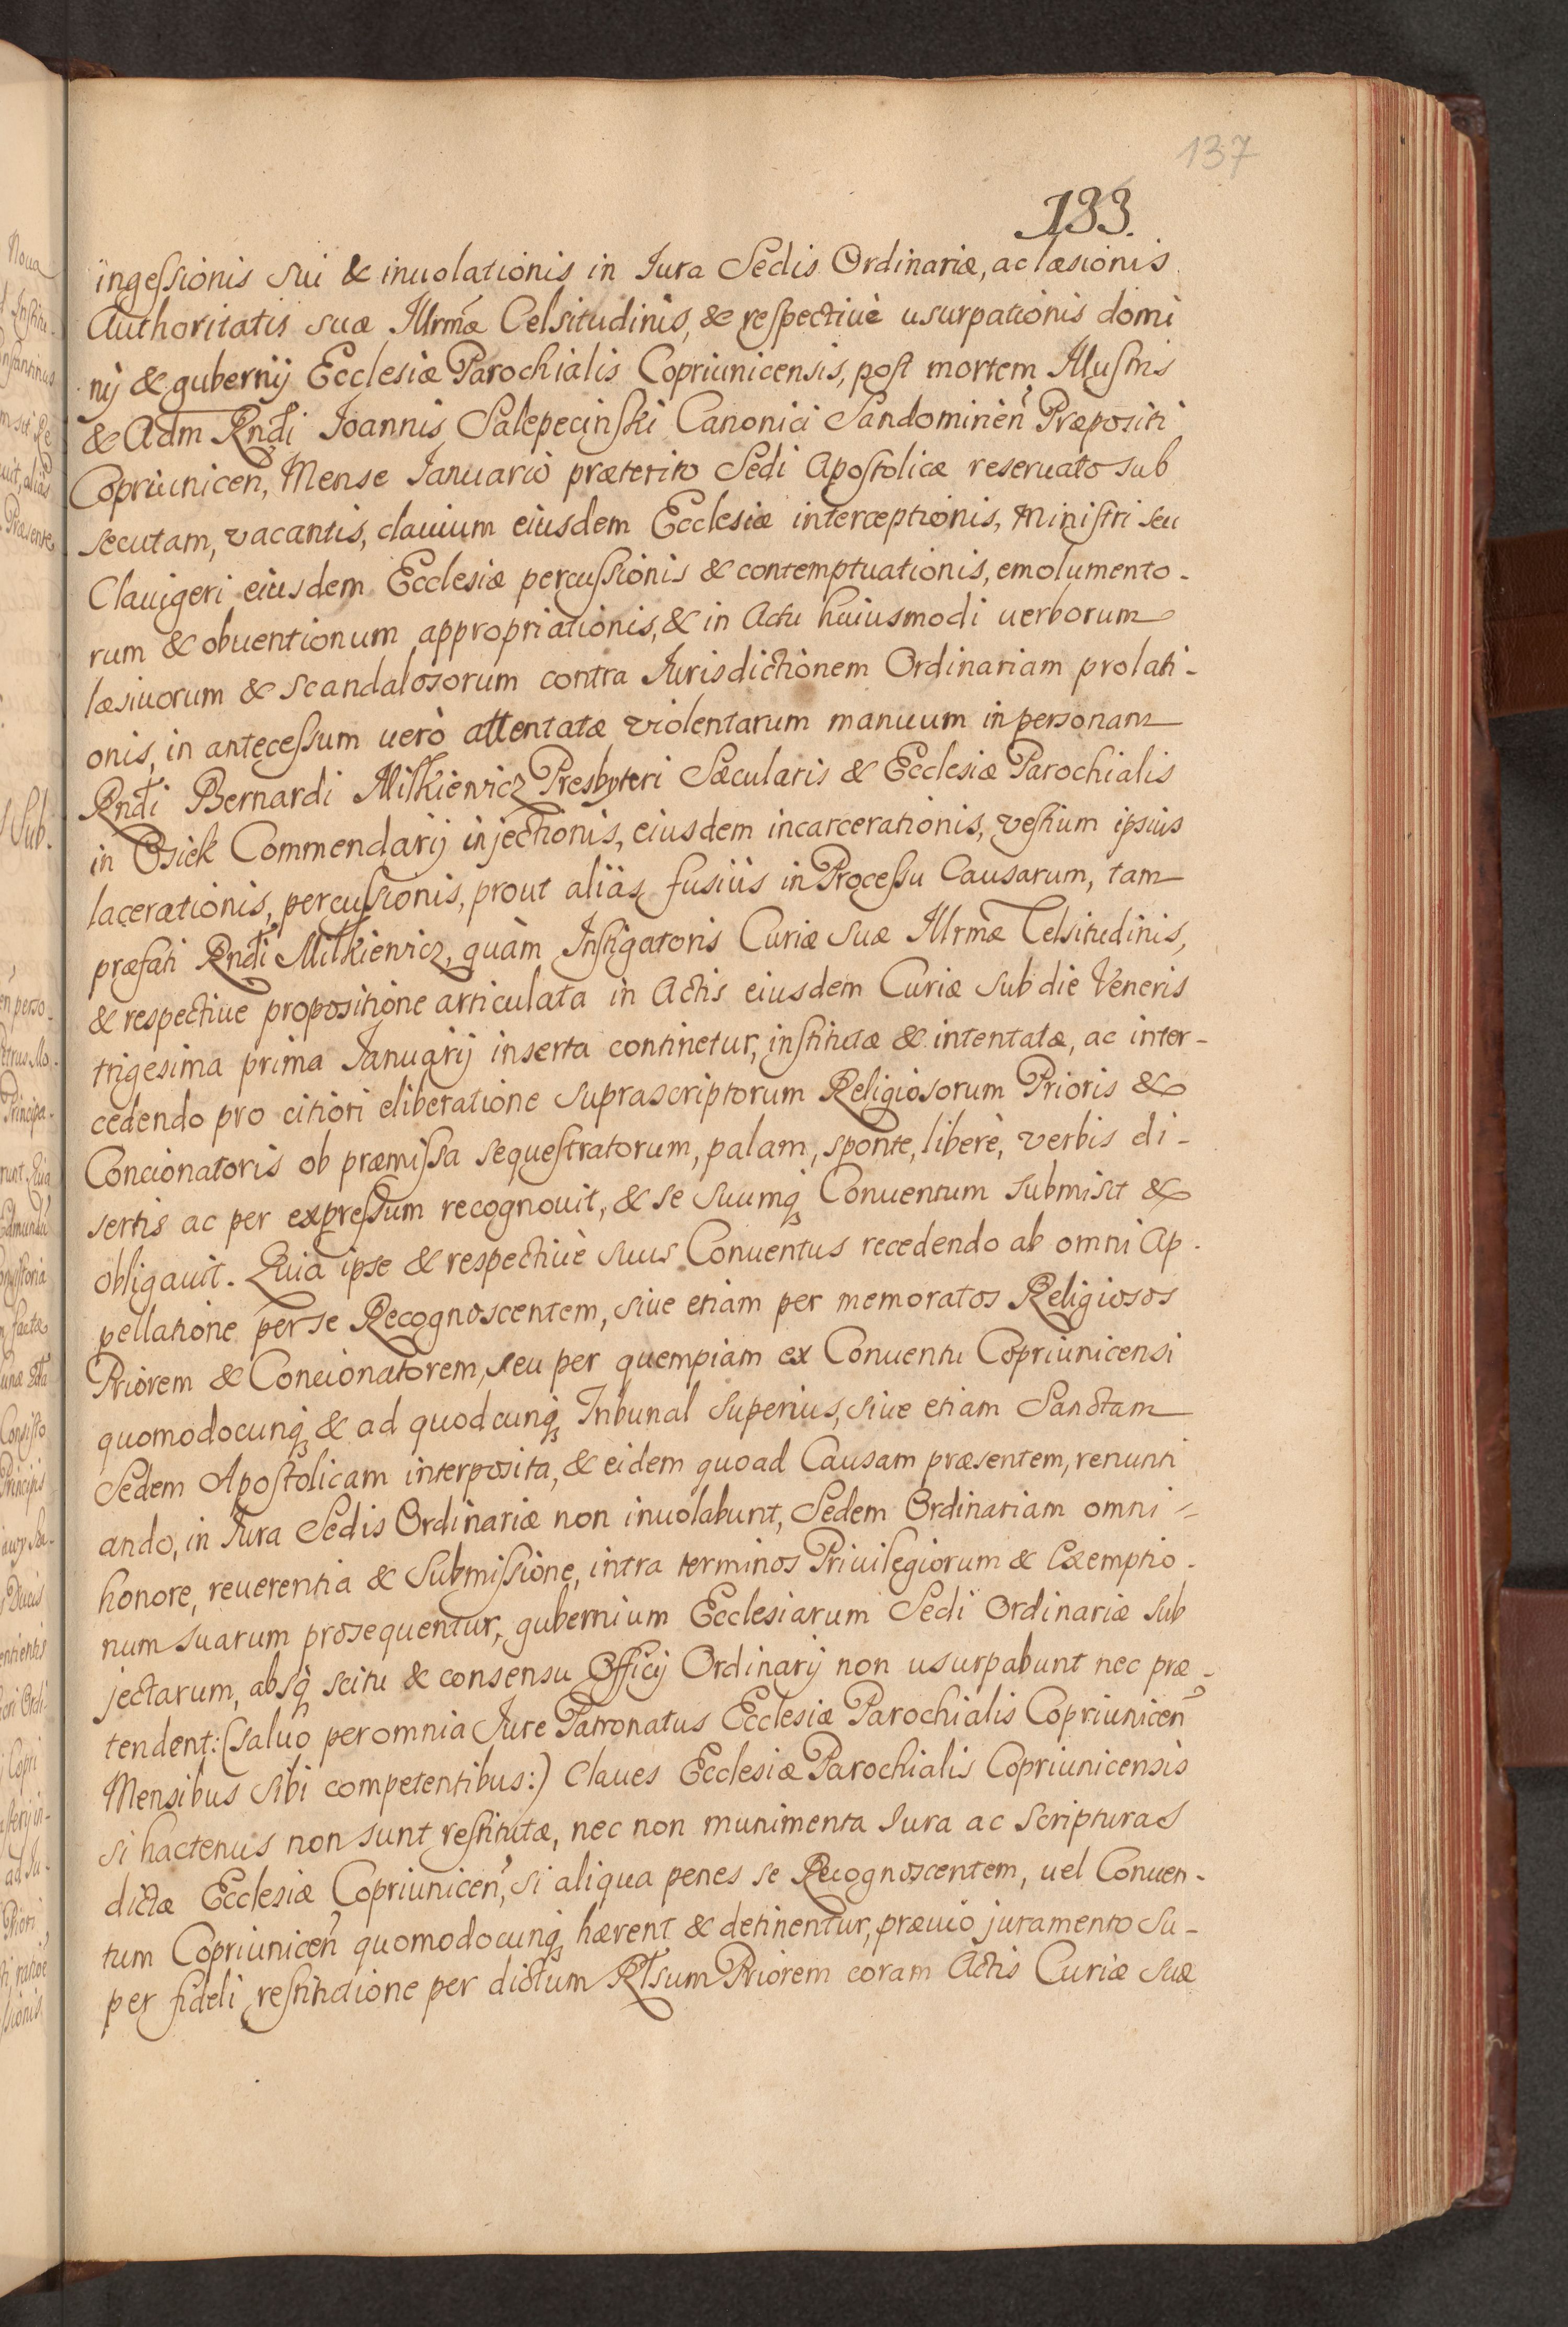 137
133.
ingeſsionis sui & inuolationis in Iura Sedis Ordinariæ, ac læsionis
Authoritatis suæ Illrmæ Celsitudinis, & reſpectiuè usurpationis domi
nij & gubernij Ecclesiæ Parochialis Copriunicensis, poſt mortem Illuſtris
& Adm Rndi Ioannis Salepecinſki Canonici Sandomirien̉ Præpositi
Copriunicen̉, Mense Ianuario præterito Sedi Apoſtolicæ reseruato sub
secutam, vacantis, clauium eiusdem Ecclesiæ interceptionis, Miniſtri seu
Clauigeri eiusdem Ecclesiæ percuſsionis & contemptuationis, emolumento-
rum & obuentionum appropriationis, & in Actu huiusmodi uerborum
læsiuorum & scandalosorum contra Iurisdictionem Ordinariam prolati-
onis, in anteceſsum uerò attentatæ violentarum manuum in personam
Rndi Bernardi Milkiewicz Presbyteri Sæcularis & Ecclesiæ Parochialis
in Osiek Commendarij injectionis, eiusdem incarcerationis, veſtium ipsius
lacerationis, percuſsionis, prout aliàs fusiùs in Proceſsu Causarum, tam
præfati Rndi Milkiewicz, quàm Inſtigatoris Curiæ suæ Illrmæ Celsitudinis,
& respectiue propositione articulata in Actis eiusdem Curiæ sub die Veneris
trigesima prima Ianuarij inserta continetur, inſtitutæ & intentatæ, ac inter-
cedendo pro citiori eliberatione suprascriptorum Religiosorum Prioris &
Concionatoris ob præmiſsa sequeſtratorum, palam, sponte, liberè, verbis di-
sertis ac per expreſsum recognouit, & se suumq; Conuentum submisit &
obligauit. Quia ipse & respectiuè suus Conuentus recedendo ab omni Ap-
pellatione per se Recognoscentem, siue etiam per memoratos Religiosos
Priorem & Concionatorem, seu per quempiam ex Conuentu Copriunicensi
quomodocunq; & ad quodcunq; Tribunal superius, siue etiam Sanctam
Sedem Apoſtolicam interposita, & eidem quoad Causam præsentem, renunti
ando, in Iura Sedis Ordinariæ non inuolabunt, Sedem Ordinariam omni =
honore, reuerentia & submiſsione, intra terminos Priuilegiorum & Exemptio-
num suarum prosequentur, gubernium Ecclesiarum Sedi Ordinariæ sub
jectarum, absq; scitu & consensu Officij Ordinarij non usurpabunt nec præ-
tendent: (saluo per omnia Iure Patronatus Ecclesiæ Parochialis Copriunicen̉
Mensibus sibi competentibus:) Claues Ecclesiæ Parochialis Copriunicensis
si hactenus non sunt reſtitutæ, nec non munimenta Iura ac Scripturas
dictæ Ecclesiæ Copriunicen̉, si aliqua penes se Recognoscentem, uel Conuen-
tum Copriunicen̉ quomodocunq; hærent & detinentur, præuio juramento su-
per fideli reſtitutione per dictum Rlsum Priorem coram Actis Curiæ suæ